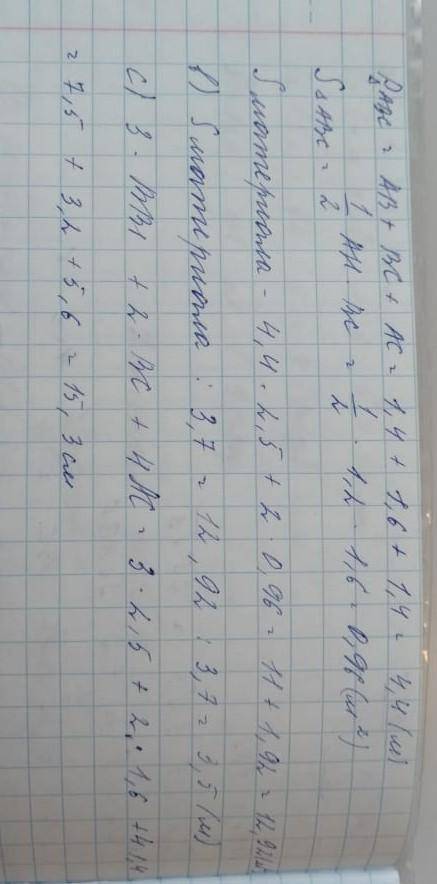 P△ABC = AB + BC + AC = 1,4 + 1,6 + 1,4 = 4,4 (м)
S△ABC = 1/2 AH · BC = 1/2 · 1,2 · 1,6 = 0,96 (м²)
Sматериала - 4,4 · 2,5 + 2 · 0,96 = 11 + 1,92 = 12,92 м²
b) Sматериала : 3,7 = 12,92 : 3,7 = 3,5 (м)
c) 3 · BB1 + 2 · BC + 4AC = 3 · 2,5 + 2 · 1,6 + 4·1,4
= 7,5 + 3,2 + 5,6 = 15,3 см